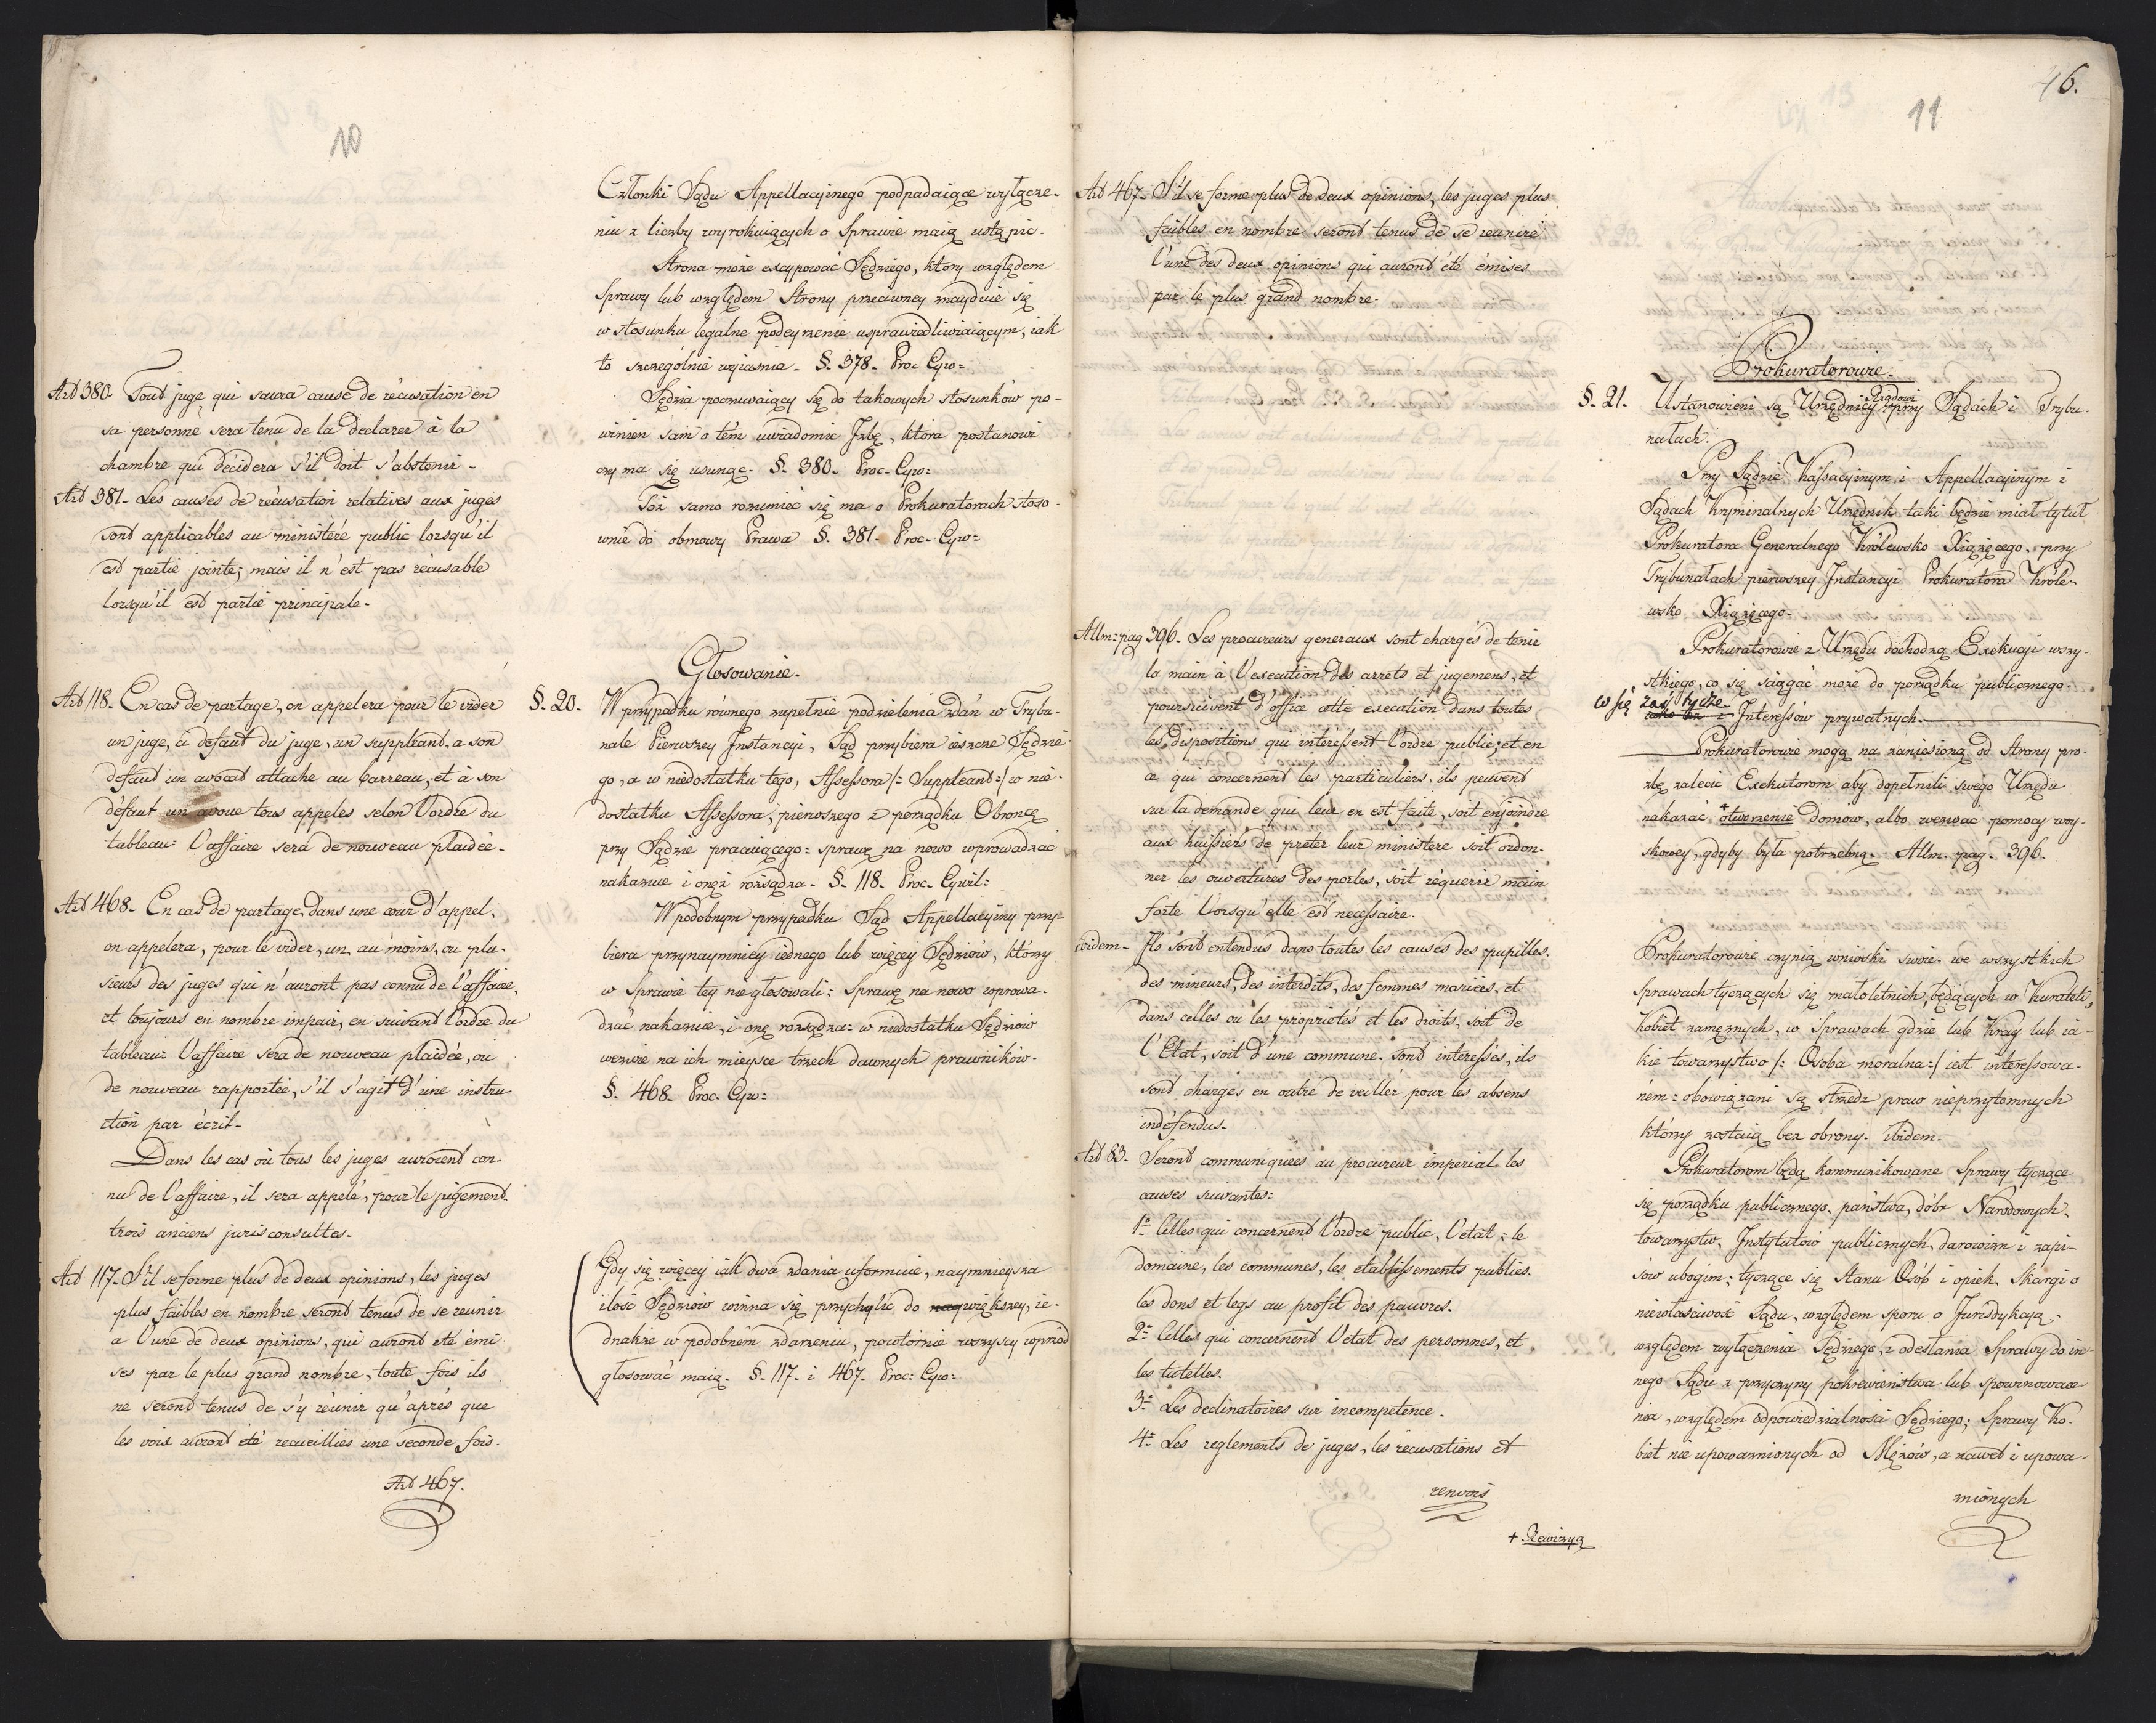 10
Art 380. Tout juge qui saura cause de récusation en
sa personne sera tenu de la declarer à la
chambre qui décidera s'il doit s'abstenir.
Art 381. Les causes de récusation relatives aux juges
sont applicables au ministére public lorsqu'il
est partie jointe; mais il n'est pas récusable
lorsqu'il est partie principale.
Art 118. En cas de partage, on appelera pour le vider
un juge, à defaut du juge, un suppleant, a son
defaut un avocat attache au barreau, et à son
défaut un avoue tous appeles selon l'ordre du
tableau: l'affaire sera de nouveau plaidée.
Art 468. En cas de partage, dans une cour d'appel,
on appelera, pour le vider, un au moins, ou plu-
sieurs des juges qui n'auront pas connu de l'affaire,
et toujours en nombre impair, en suivant l'ordre du
tableau: l'affaire sera de nouveau plaidée, ou
de nouveau rapportée, s'il s'agit d'une instru
ction par écrit.
Dans les cas où tous les juges auroient con-
nu de l'affaire, il sera appelé, pour le jugement
trois anciens jurisconsultes.
Art 117. S'il se forme plus de deux opinions, les juges
plus faibles en nombre seront tenus de se reunir
a l'une de deux opinions, qui auront été émi
ses par le plus grand nombre, toute fois ils
ne seront tenus de s'y réunir qu'après que
les voix auront été recueillies une seconde fois.
Art 467.
Członki Sądu Appellacyinego podpadaiące wyłącze-
niu z liczby wyrokuiących o Sprawie maią ustąpic.
Strona może excypować Sędziego, ktory względem
Sprawy lub względem Strony przeciwney znayduie się
w stosunku legalne podeyrzenie usprawiedliwiaiącym, iak
to szczególnie wyiasnia. §. 378. Proc. Cyw:
Sędzia poczuwaiący się do takowych stosunków po-
winien sam o tém uwiadomic Izbę, ktora postanowi
czy ma się usunąc. §. 380. Proc. Cyw:
Toż samo rozumieć się ma o Prokuratorach stoso-
wnie do obmowy Prawa §. 381. Proc. Cyw:
Głosowanie.
§. 20. W przypadku równego zupełnie podzielenia zdań w Trybu-
nale Pierwszey Instancyi, Sąd przybiera ieszcze Sędzie
go, a w niedostatku tego, Assessora /: Suppleant :/ w nie-
dostatku Assessora, pierwszego z porządku Obroncę
przy Sądzie pracuiącego: sprawę na nowo wprowadzać
nakazuie i onęż rozsądza. §. 118. Proc. Cywil:
W podobnym przypadku Sąd Appellacyiny przy-
biera przynaymniey iednego lub więcey Sędziów, którzy
w Sprawie tey nie głosowali: Sprawę na nowo wprowa-
dzać nakazuie, i onę rozsądza: w niedostatku Sędziów
wezwie na ich mieysce trzech dawnych prawników.
§. 468. Proc. Cyw:
Gdy się więcey iak dwa zdania uformuie, naymnieysza
ilość Sędziów winna się przychylić do naywiększey, ie-
dnakże w podobném zdarzeniu, powtórnie wszyscy wprzód
głosować maią. §. 117. i 467. Proc: Cyw:
46.
11
Art 467. S'il se forme plus de deux opinions, les juges plus
faibles en nombre seront tenus de se reunire
l'une des deux opinions qui auront été émises
par le plus grand nombre.
Allm: pag 396. Les procureurs generaux sont chargés de tenir
la main à l'execution des arrets et jugemens, et
poursuivent d'office cette execution dans toutes
les dispositions qui intéressent l'ordre public; et en
ce qui concernent les particuliers, ils peuvent
sur la demande qui leur en est faite, soit enjoindre
aux huissiers de preter leur ministere soit ordon-
ner les ouvertures des portes, soit réquerir main
forte lorsqu'elle est necessaire.
ibidem. Ils sont entendus dans toutes les causes des pupilles,
des mineurs, des interdits, des femmes mariées, et
dans celles où les proprietés et les droits, soit de
l'Etat, soit d'une commune. sont interessés, ils
sont chargés en outre de veiller pour les absens
indéfendus.
Art 83. Seront communiquées au procureur imperial les
causes suivantes:
1º Celles qui concernent l'ordre public, l'etat, le
domaine, les communes, les etablissements publics.
les dons et legs au profit des pauvres.
2º Celles qui concernent l'etat des personnes, et
les tutelles.
3º Les declinatoires sur incompetence.
4º Les reglements de juges, les récusations et
renvois
+ Rewizyą
Prokuratorowie.
§. 21. Ustanowieni są Urzędnicy Rządowi przy Sądach i Trybu-
nałach.
Przy Sądzie Kassacyinym i Appellacyinym i
Sądach Kryminalnych Urzędnik taki będzie miał tytuł
Prokuratora Generalnego Królewsko Xiążęcego. przy
Trybunałach pierwszey Instancyi Prokuratora Króle-
wsko Xiążęcego.
Prokuratorowie z Urzędu dochodzą Exekucyi wszy-
stkiego, co się sciągać może do porządku publicznego.
co się zaś tycze Interessów prywatnych.
Prokuratorowie mogą na zaniesioną od Strony pro-
zbę zalecić Exekutorom aby dopełnili swego Urzędu
nakazać + otworzenie domow, albo wezwać pomocy woy-
skowey, gdyby była potrzebną. Allm. pag. 396.
Prokuratorowie czynią wnioski swoie we wszystkich
Sprawach tyczących się małoletnich, będących w Kurateli,
Kobiet zamężnych, w Sprawach gdzie lub Kray lub ia-
kie towarzystwo /: Osoba moralna :/ iest interessowa-
ném: obowiązani są strzedz praw nieprzytomnych
którzy zostaią bez obrony. ibidem.
Prokuratorom będą kommunikowane Sprawy tyczące
się porządku publicznego, państwa, dóbr Narodowych,
towarzystw, Instytutów publicznych, darowizn i zapi-
sow ubogim; tyczące się Stanu Osób i opiek. Skargi o
niewłaściwość Sądu, względem sporu o Jurisdykcyą;
względem wyłączenia Sędziego, i odesłania Sprawy do in-
nego Sądu z przyczyny pokrewieństwa lub spowinowace
nia, względem odpowiedzialnosci Sędziego; Sprawy Ko-
biet nie upoważnionych od Mężów, a nawet i upowa-
żnionych